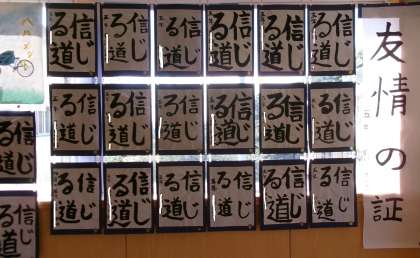 友情の証
信じ
る道
信じ
る道
信じ
る道
信じ
る道
信じ
る道
信じ
る道
信じ
る道
信じ
る道
信じ
る道
信じ
る道
信じ
る道
信じ
る道
信じ
る道
信じ
る道
信じ
る道
信じ
る道
信じ
る道
信じ
る道
信じ
る道
信じ
る道